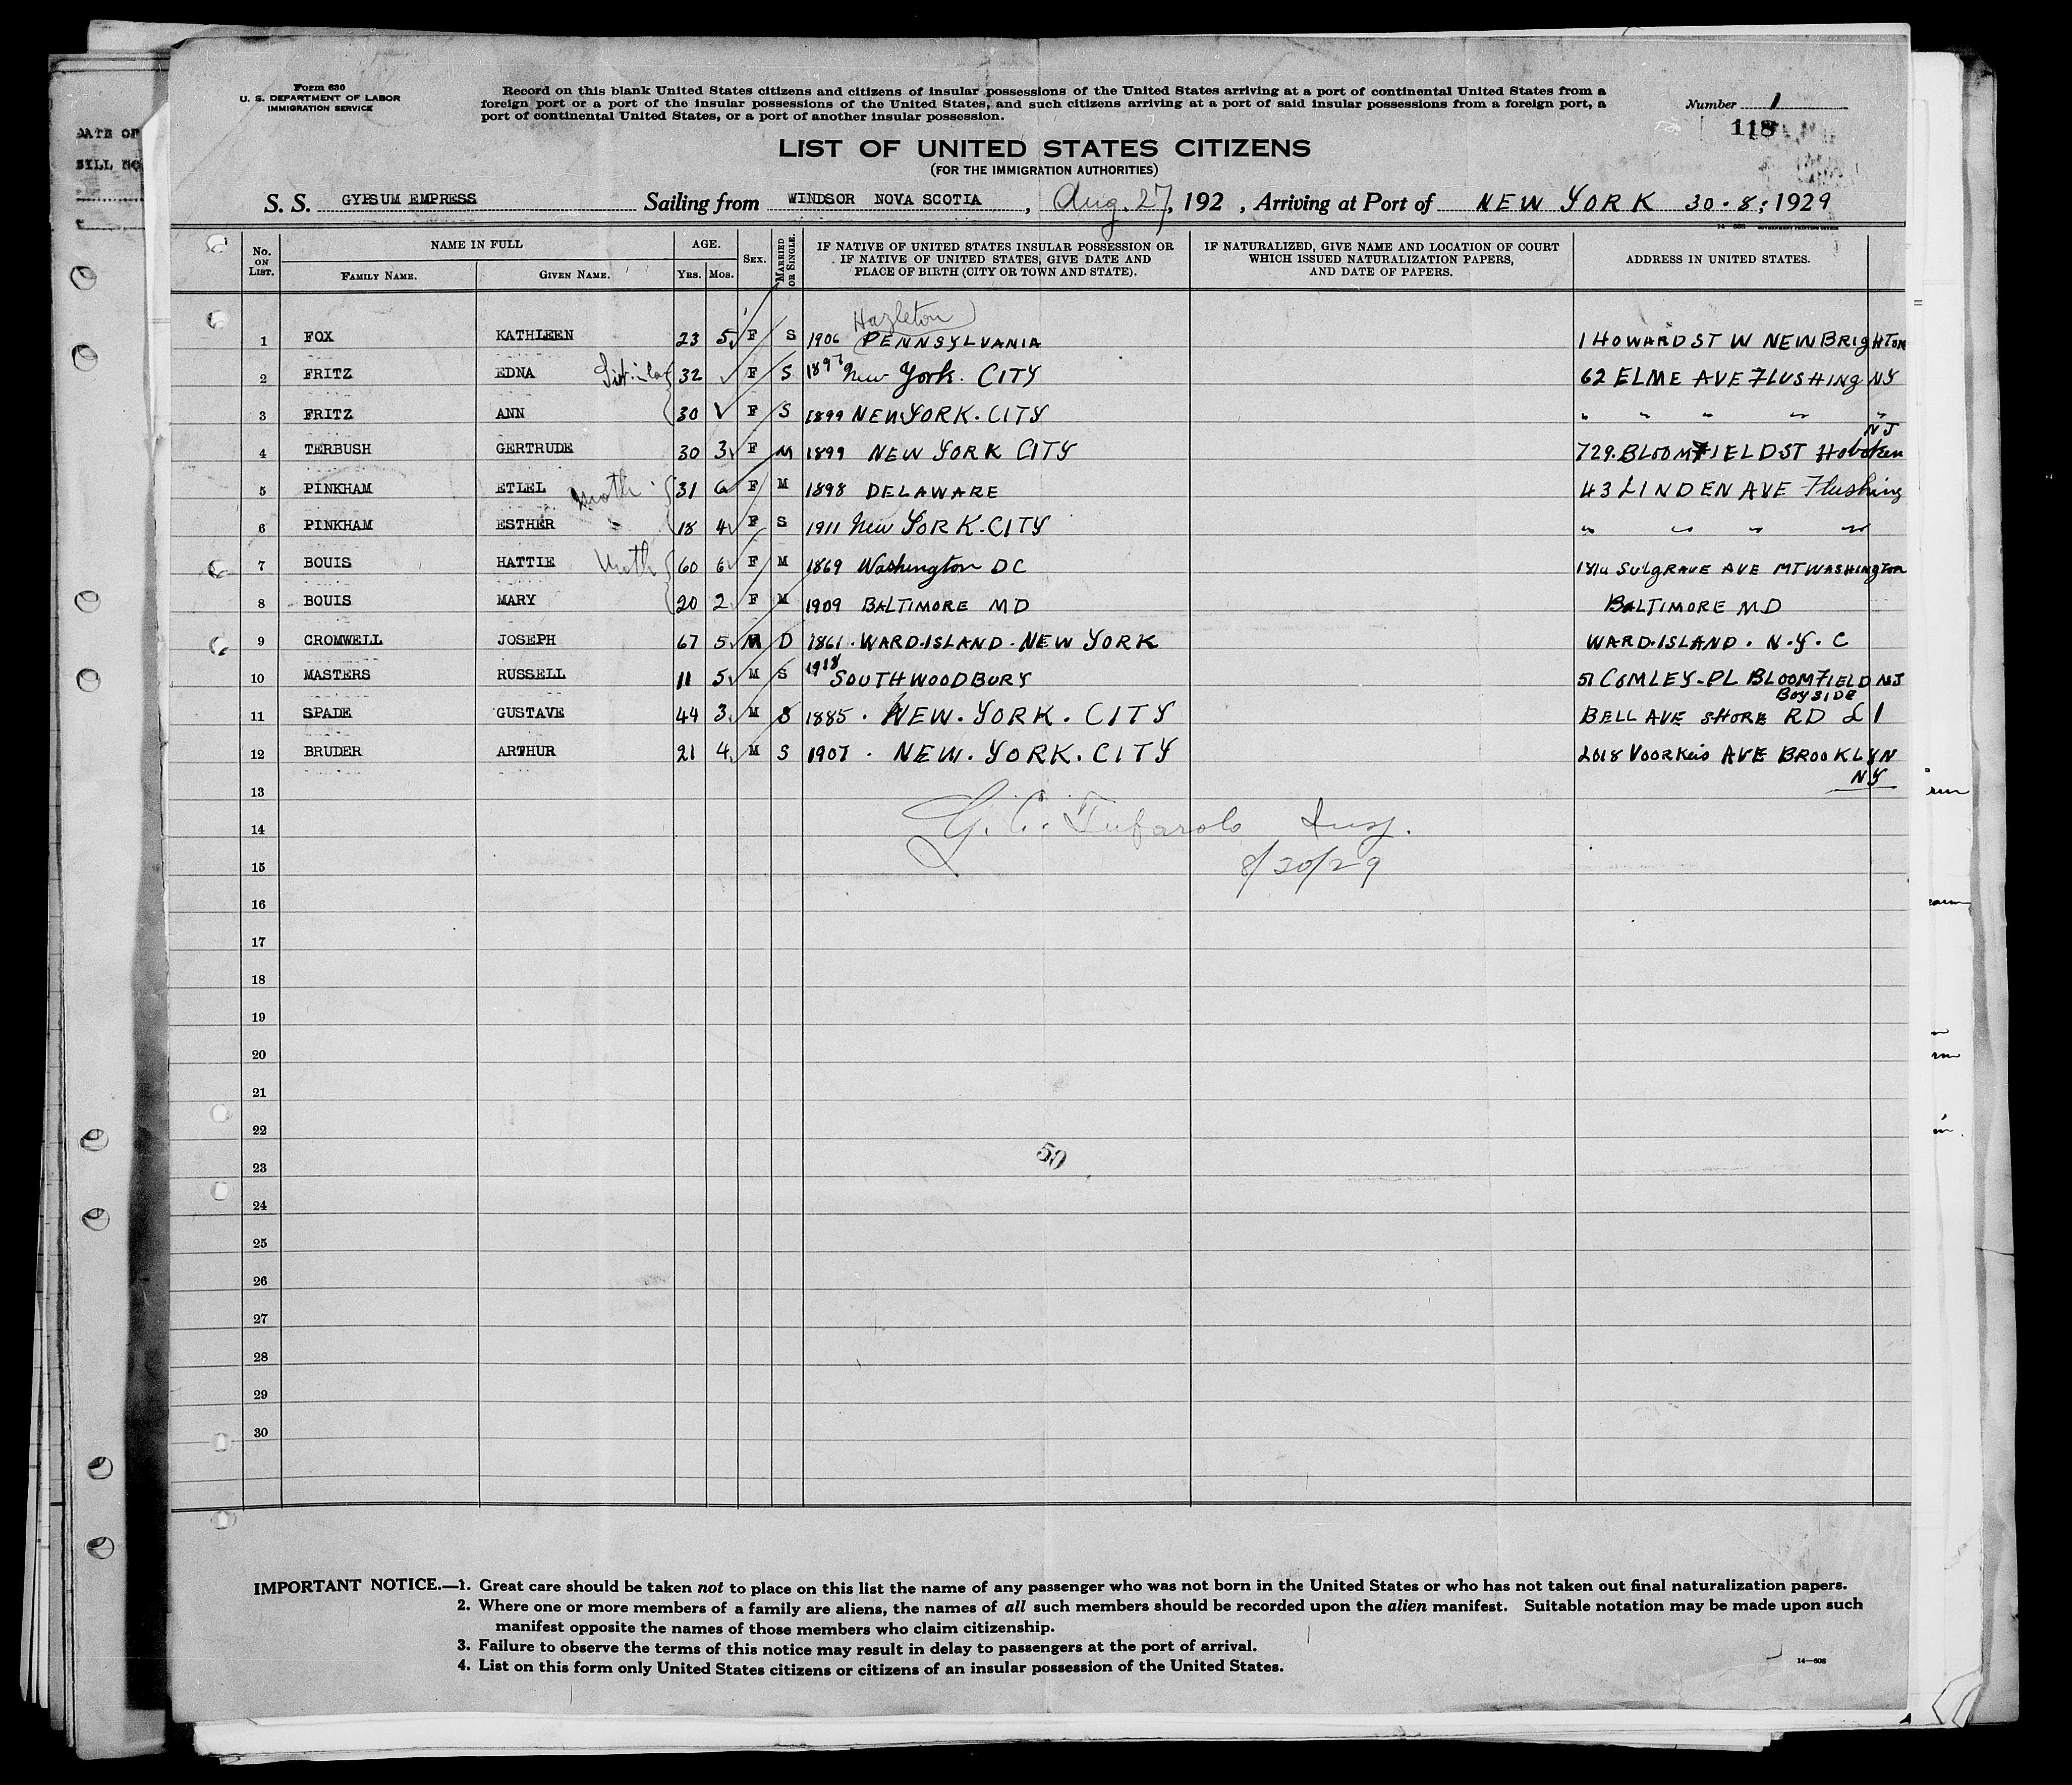 DATE OF
BILL NO
Form 630
U. S. DEPARTMENT OF LABOR
IMMIGRATION SERVICE
Record on this blank United States citizens and citizens of insular possessions of the United States arriving at a port of continental United States from a
foreign port or a port of the insular possessions of the United States, and such citizens arriving at a port of said insular possessions from a foreign port, a
port of continental United States, or a port of another insular possession.
Number 1
118
LIST OF UNITED STATES CITIZENS
(FOR THE IMMIGRATION AUTHORITIES)
S. S. GYPSUM EMPRESS Sailing from WINDSOR NOVA SCOTIA, Aug. 27, 192 , Arriving at Port of NEW YORK 30.8; 1929
No. ON LIST. NAME IN FULL FAMILY NAME. GIVEN NAME. AGE. YRS. MOS. SEX. MARRIED OR SINGLE. IF NATIVE OF UNITED STATES INSULAR POSSESSION OR IF NATIVE OF UNITED STATES, GIVE DATE AND PLACE OF BIRTH (CITY OR TOWN AND STATE). IF NATURALIZED, GIVE NAME AND LOCATION OF COURT WHICH ISSUED NATURALIZATION PAPERS, AND DATE OF PAPERS. ADDRESS IN UNITED STATES.
Hazleton
1 FOX KATHLEEN 23 5 F S 1906 PENNSYLVANIA 1 HOWARD ST W NEW BRIGHTON
2 FRITZ EDNA 32 F S 1897 New York. CITY 62 ELME AVE FLUSHING NY
3 FRITZ ANN 30 F S 1899 NEW YORK. CITY " " " " "
NJ
4 TERBUSH GERTRUDE 30 3 F M 1899 NEW YORK CITY 729. BLOOMFIELD ST Hoboken
5 PINKHAM ETLEL moth 31 6 F M 1898 DELAWARE 43 LINDEN AVE Flushing
6 PINKHAM ESTHER 18 4 F S 1911 New YORK. CITY " " " "
7 BOUIS HATTIE Moth 60 6 F M 1869 Washington DC SULGRAVE AVE MT WASHINGTON
8 BOUIS MARY 20 2 F M 1909 BALTIMORE MD BALTIMORE MD
9 CROMWELL JOSEPH 67 5 M D 1861. WARD.ISLAND. NEW YORK WARD.ISLAND. N.Y. C
10 MASTERS RUSSELL 11 5 M S 1918 SOUTH WOODBURY 51 COMLEY-PL BLOOMFIELD NJ
BOYSIDE
11 SPADE GUSTAVE 44 3 M S 1885. NEW. YORK. CITY BELL AVE SHORE RD L I
12 BRUDER ARTHUR 21 4 M S 1907. NEW. YORK. CITY 2018 VOORKEIS AVE BROOKLYN
NY
13
14 G. C. Tufarolo Insp.
15 8/30/29
16
17
18
19
20
21
22
50
23
24
25
26
27
28
29
30
IMPORTANT NOTICE.—1. Great care should be taken not to place on this list the name of any passenger who was not born in the United States or who has not taken out final naturalization papers.
2. Where one or more members of a family are aliens, the names of all such members should be recorded upon the alien manifest. Suitable notation may be made upon such
manifest opposite the names of those members who claim citizenship.
3. Failure to observe the terms of this notice may result in delay to passengers at the port of arrival.
4. List on this form only United States citizens or citizens of an insular possession of the United States.